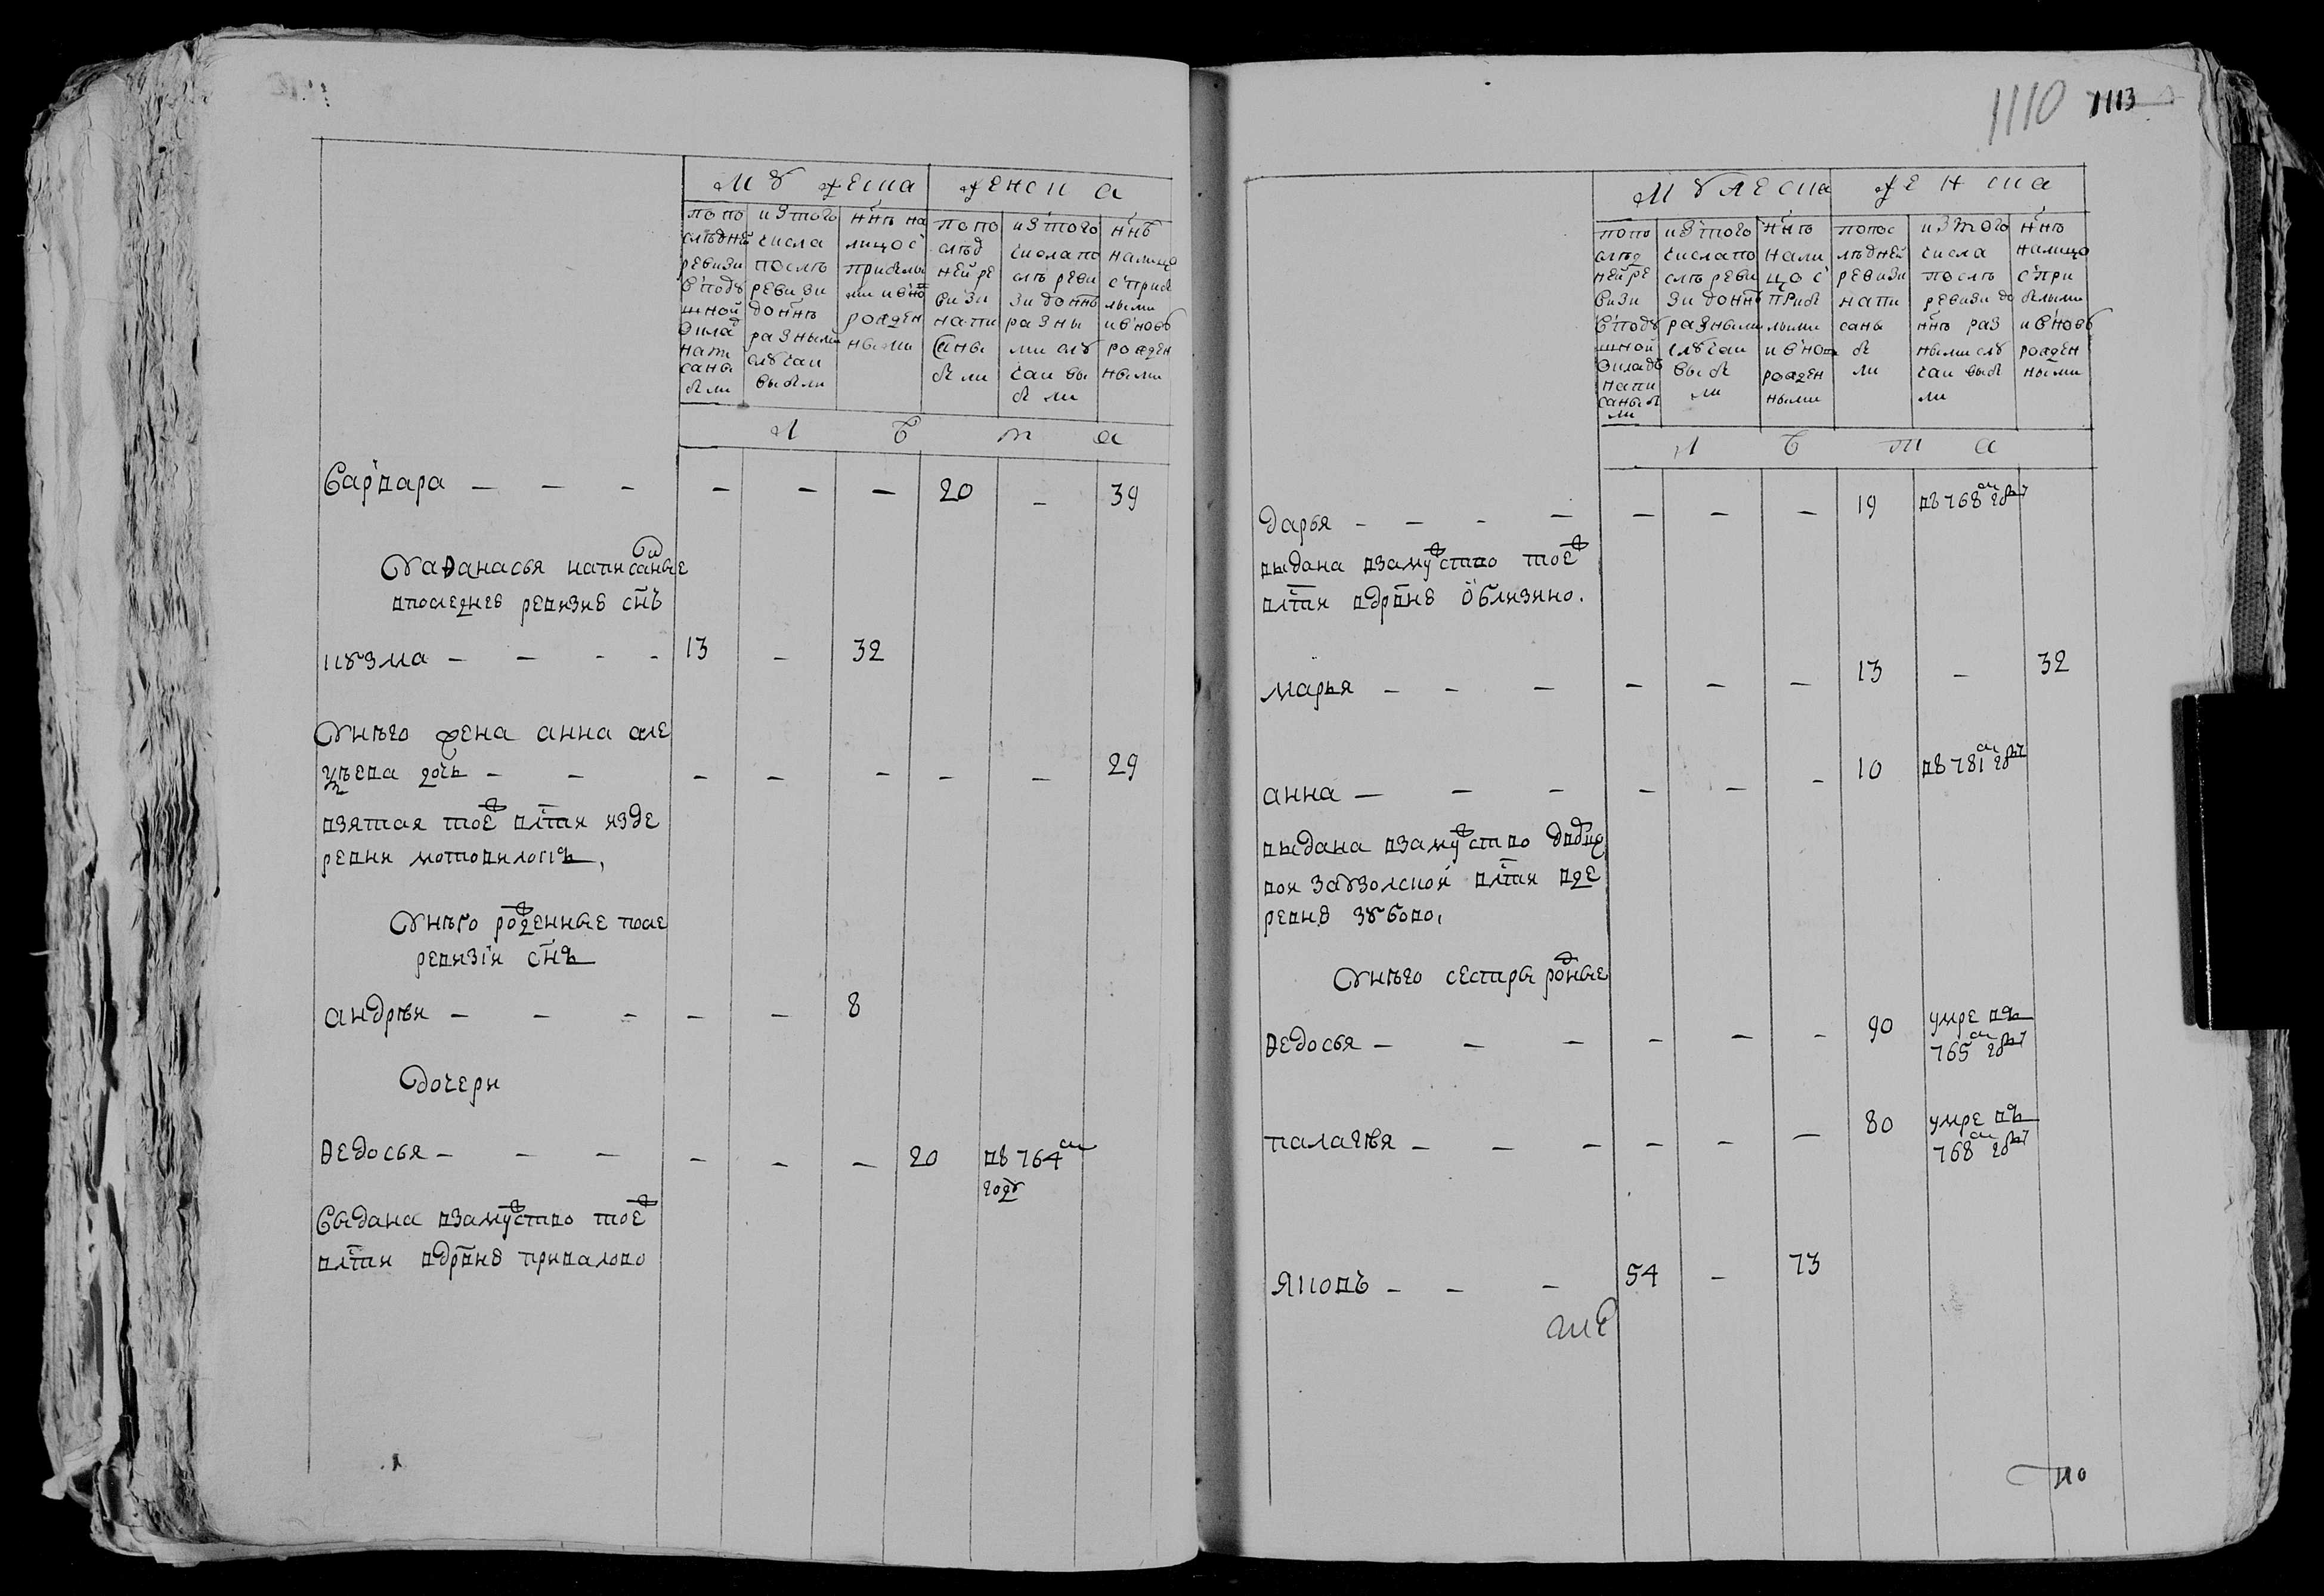 мужеска женска
по по
слѣдней
ревизи
в подушной
окладъ
написаны
были
из того
числа
послѣ
ревизи
до ннѣ
разными
случаи
выбыли
ннѣ на
лицо с
прибылы
ми и вновь
рожден
ными
по по
слѣд
ней ре
визи
напи
саны
были
из того
числа по
слѣ реви
зи до ннѣ
разны
ми слу
чаи вы
были
ннѣ
налицо
с прибы
лыми
и вновь
рожден
ными
л ѣ т а
варвара — — — — — — 20 — 39
У афанасья написанные
впоследнеѣ ревизиѣ снъ
кузма — — — — 13 — 32
У него жена анна але
ѣева дочь — — — — — — — 29
взятая тоеж влсти из де
ревни мотовиловъ,
У него рожденные после
ревизiи снъ
андрѣи — — — — — 8
Дочери
федосья — — — — — — 20 въ 764м
году
Выдана взамужство тоеж
влсти вдрвнѣ привалово
1110 1113
мужеска женска
по по
слѣд
ней ре
визи
в поду
шной
окладъ
напи
саны бы
ли
из того
числа по
слѣ реви
зи до ннѣ
разными
случаи
выбы
ли
ннѣ
нали
цо с
прибы
лыми
и вновь
рожден
ными
по пос
лѣдней
ревизи
напи
саны
бы
ли
из того
числа
послѣ
ревизи до
ннѣ раз
ными слу
чаи выбы
ли
ннѣ
налицо
с при
былыми
и вновь
рожден
ными
л ѣ т а
дарья — — — — — — — 19 въ 768м году
выдана взамужство тоеж
влсти вдрвнѣ облизино.
марья — — — — — — 13 — 32
анна — — — — — — 10 въ 781м году
выдана взамужство
вои заузолскои влсти вде
ревнѣ зубово,
У него сестры родные
федосья — — — — — — 90 умре въ
765м году
палагѣя — — — — — — 80 умре въ
768м году
яковъ — — — 54 — 73
110